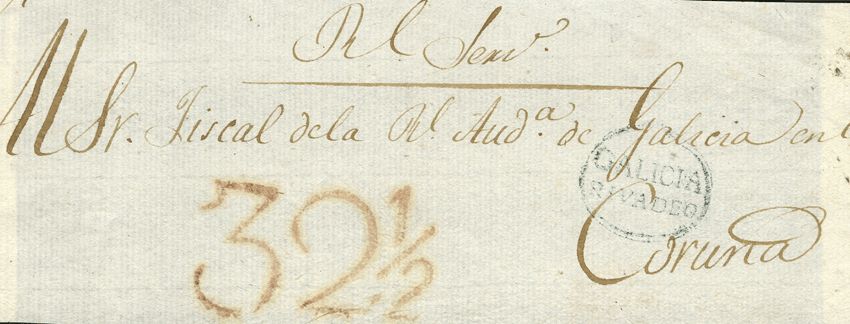 Rl. Servo.
Al Sr. Fiscal de la Rl. Auda. de Galicia en l
GALICIA
RIVADEO
Coruña
32 1/2